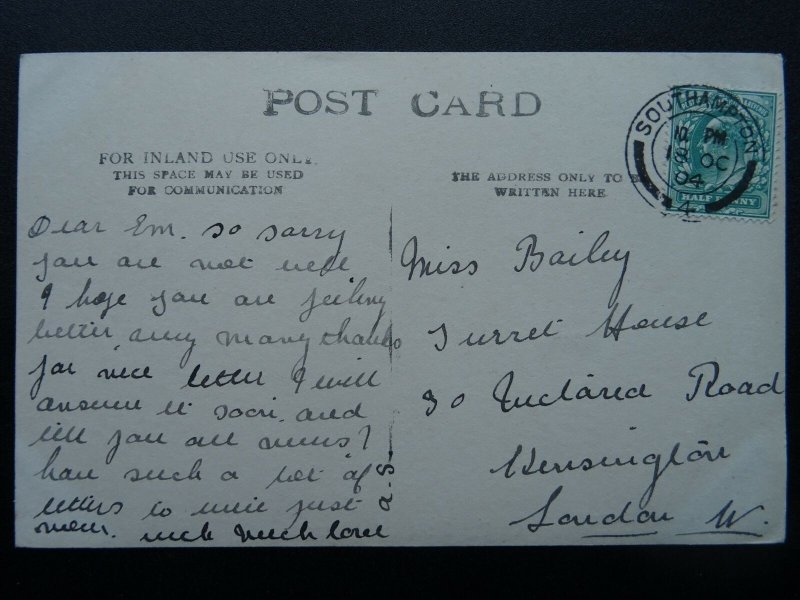 POST CARD
FOR INLAND USE ONLY.
THIS SPACE MAY BE USED
FOR COMMUNICATION
THE ADDRESS ONLY TO
WRITTEN HERE
SOUTHAMPTON
PM
OC
04
4
HALF PENNY
Dear Em. so sorry
you are not well
I hope you are feeling
better, very many thanks
for nice letter I will
answer it soon. and
tell you all news I
have such a lot of
letters to write just
now. with much love
a.S.
Miss Bailey
Turret House
30 Road
Kensington
London W.